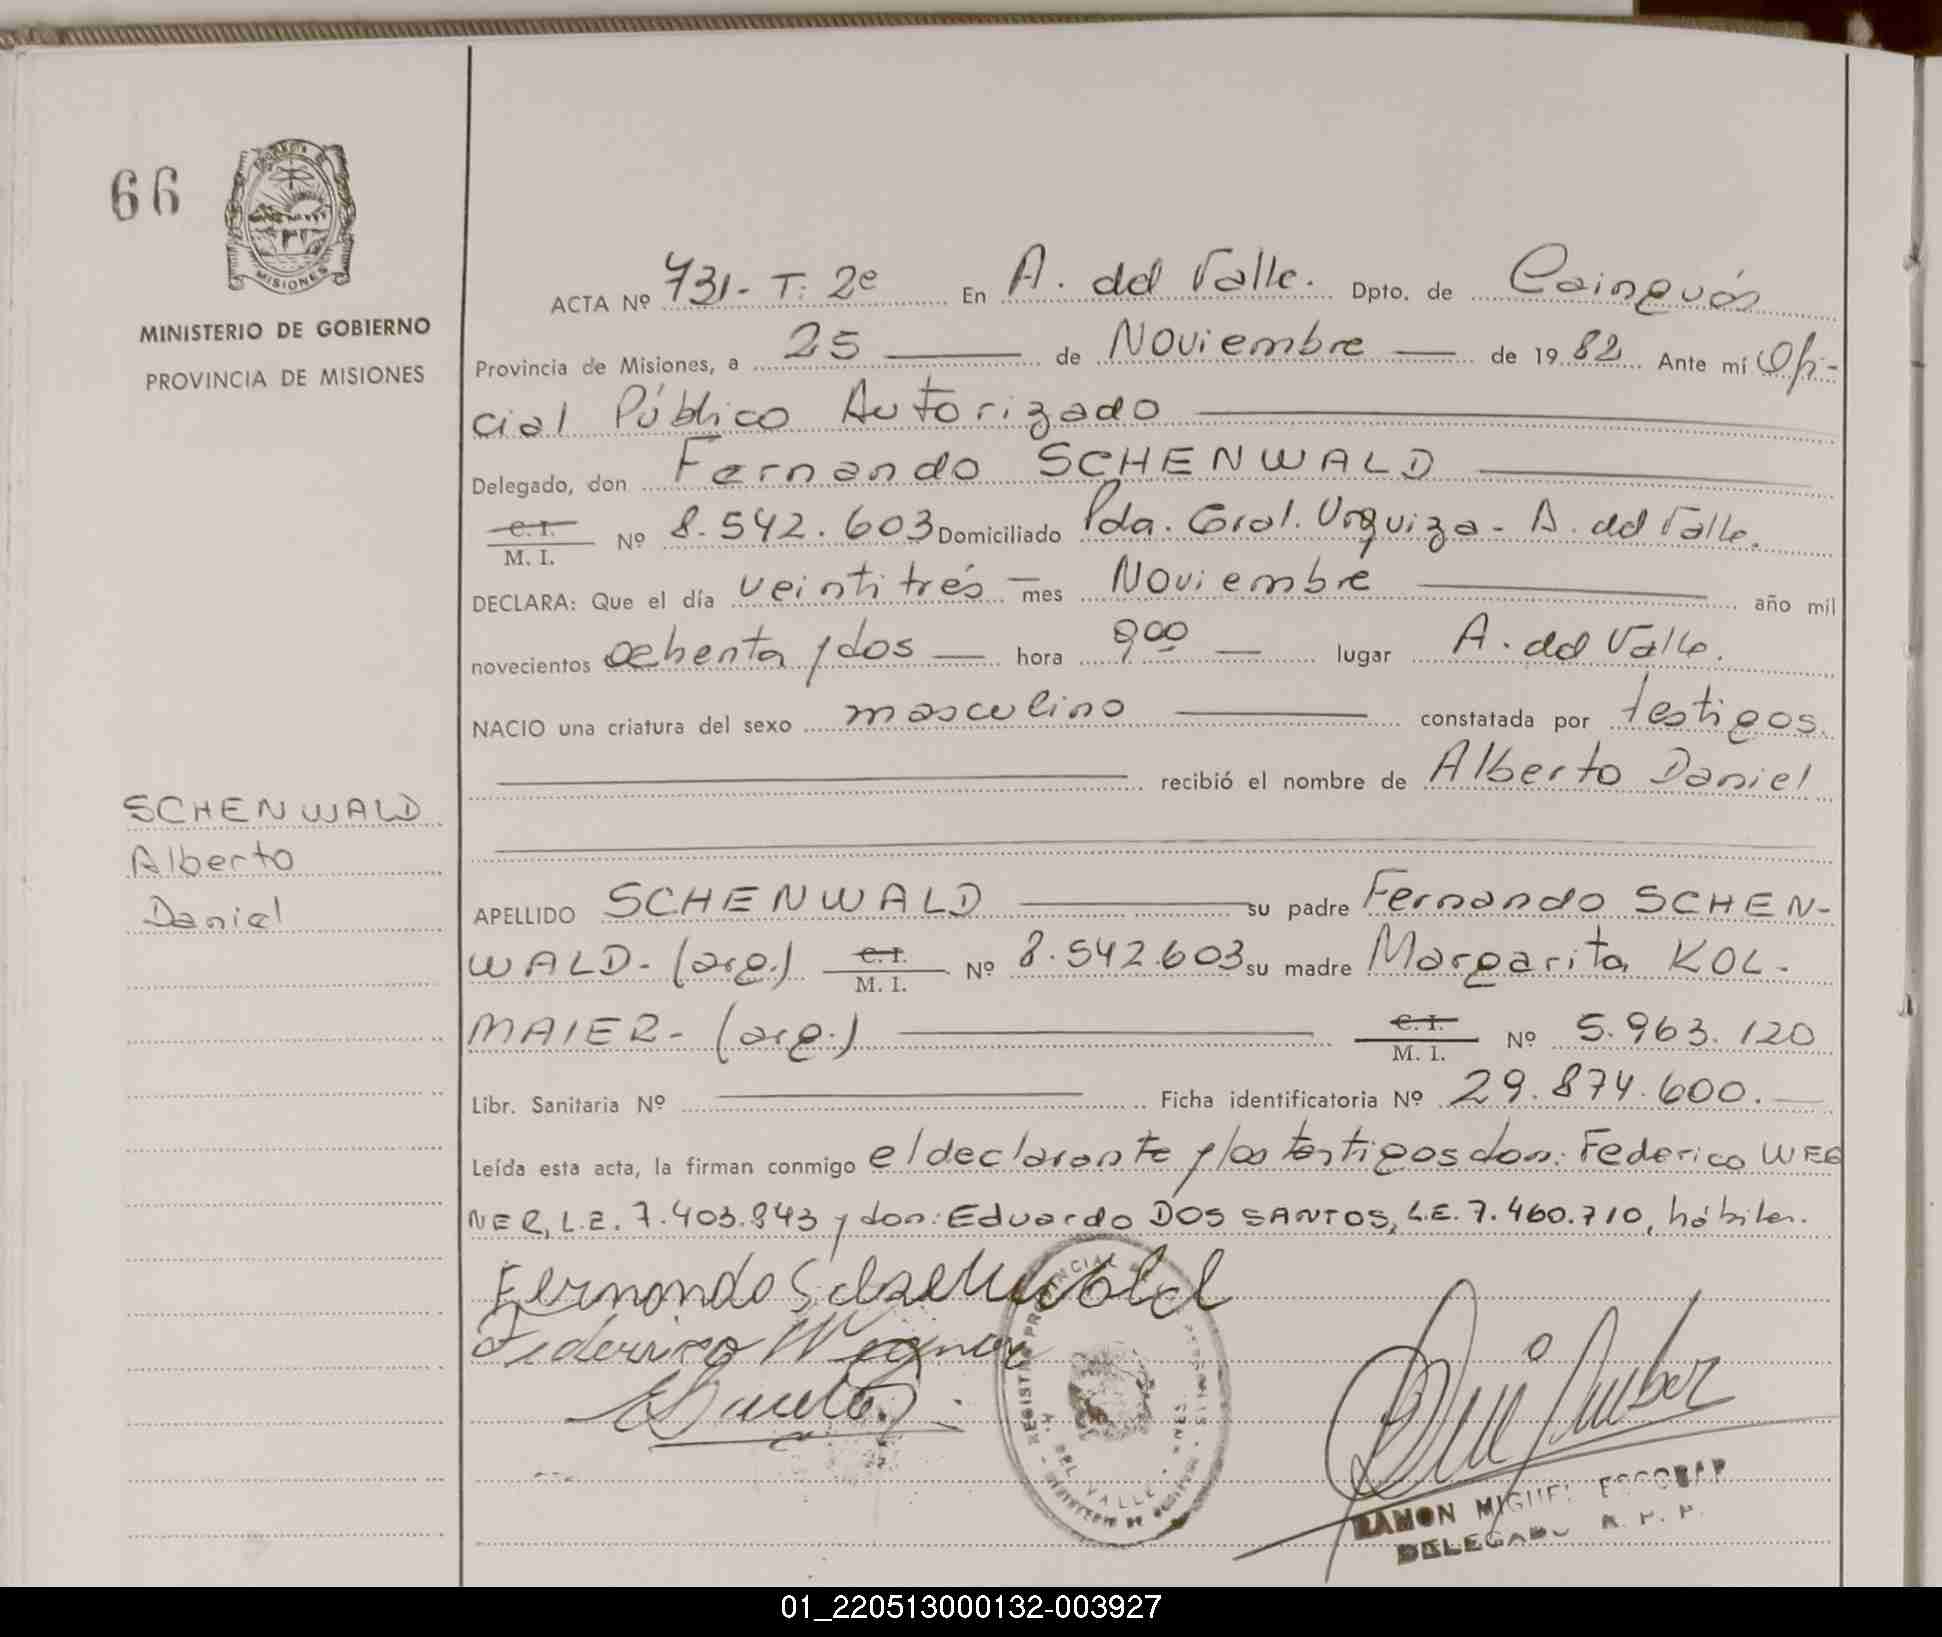 66
MISIONES
MINISTERIO DE GOBIERNO
PROVINCIA DE MISIONES
ACTA Nº 731- T: 2º En A. del Valle. Dpto. de Cainguás
Provincia de Misiones, a 25 de Noviembre de 1982 Ante mí Ofi-
cial Público Autorizado
Delegado, don Fernando SCHENWALD
C. I.
M. I. Nº 8.542.603 Domiciliado Pda. Gral. Urquiza - A. del Valle.
DECLARA: Que el día veintitrés mes Noviembre año mil
novecientos ochenta y dos hora 9⁰⁰ lugar A. del Valle.
NACIO una criatura del sexo masculino constatada por testigos.
recibió el nombre de Alberto Daniel
SCHENWALD
Alberto
Daniel
APELLIDO SCHENWALD su padre Fernando SCHEN-
WALD- (arg.) C. I. M. I. Nº 8.542.603 su madre Margarita KOL-
MAIER- (arg.) C. I. M. I. Nº 5.963.120
Libr. Sanitaria Nº Ficha identificatoria Nº 29.874.600.
Leída esta acta, la firman conmigo el declarante y los testigos don: Federico WEG
NER, L.E. 7.403.843 y don: Eduardo DOS SANTOS, L.E. 7.460.710, hábiles.
Fernando Schenwald
Federico Wegner
REGISTRO PROVINCIAL
A. DEL VALLE
MINISTERIO DE
RAMON MIGUEL ESCOBAR
DELEGADO R. P. P.
01_220513000132-003927